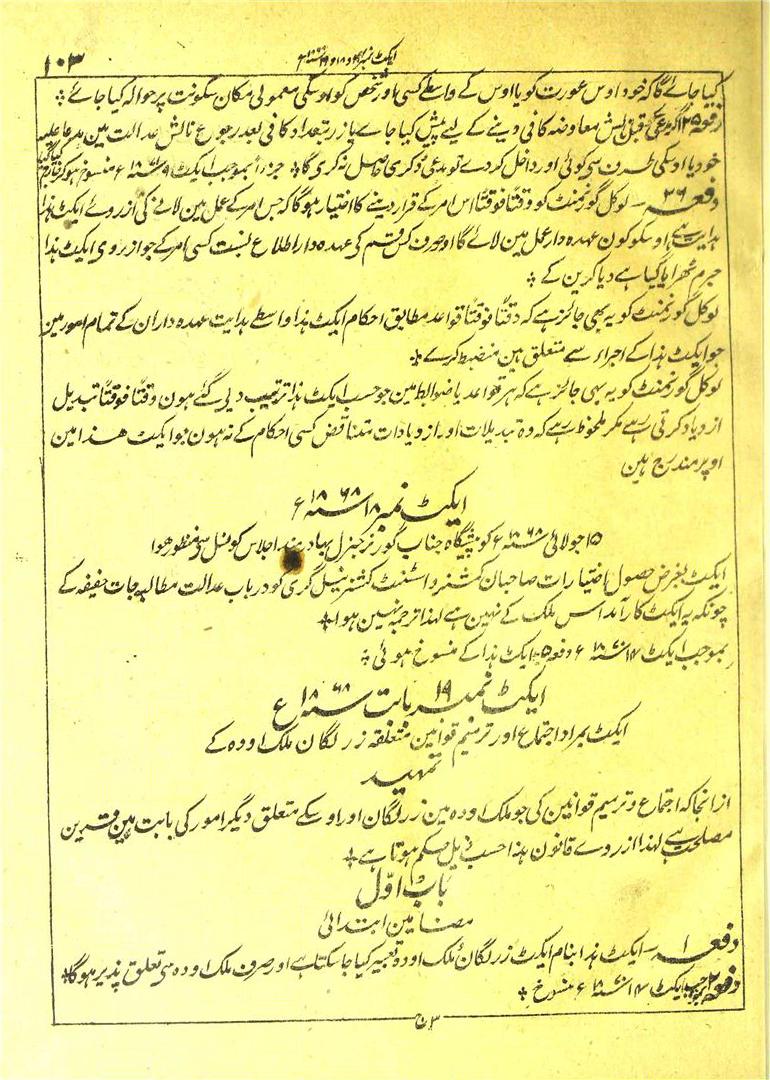 ۱۰۳
کیا جائے گا کہ خود اوس عورت کو یا اوس کے واسطے کسی اور شخص کو اوسکی معمولی مکان سکونت پر حوالہ کیا جائے *
دفعہ ۲۵ اگر مدعی قبل نالش معاوضہ کافی دینے کے لیے پیش کیا جاے یا زر بتعداد کافی بعد رجوع نالش عدالت مین مدعا علیہ
خود یا اوسکی طرف سی کوئی اور داخل کر دے تو مدعی ڈکری حاصل نہ کری گا * جزءاً بموجب ایکٹ منسوخ ہو کر خارج کیا گیا
دفعہ ۲۶ — لوکل گورنمنٹ کو وقتًا فوقتًا اس امر کے قرار دینے کا اختیار ہوگا کہ جس امر کے عمل مین لانے کی از روے ایکٹ ہذا
ہدایت ہے اوسکو کون عہدہ دار عمل مین لائے گا اور صرف کس قسم کی عہدہ دار اطلاع نسبت کسی امر کے جو از روی ایکٹ ہذا
جرم ٹھرایا گیا ہے دیا کرین گے *
لوکل گورنمنٹ کو یہ بھی جائز ہے کہ وقتًا فوقتًا قواعد مطابق احکام ایکٹ ہذا واسطے ہدایت عہدہ داران کے تمام امور مین
جو ایکٹ ہذا کے اجراء سے متعلق ہین منضبط کرے *
لوکل گورنمنٹ کو یہ بہی جائز ہے کہ ہر قواعد یا ضوابط مین جو حسب ایکٹ ہذا ترتیب دیی گئے ہون وقتًا فوقتًا تبدیل
ازدیاد کرتی رہے مگر ملحوظ رہے کہ وہ تبدیلات اور ازویادات متناقض کسی احکام کے نہ ہون جو ایکٹ ھذا مین
اوپر مندرج ہین
ایکٹ نمبر ۱۸ سنہ ۱۸۶۸ ء
۱۵ جولائی سنہ ۱۸۶۸ ء کو پیشگاہ جناب گورنر جنرل بہادر ہند اجلاس کونسل سے منظور ھوا
ایکٹ بغرض حصول اختیارات صاحبان کمشنر و اسٹنٹ کمشنر نیل گری کو در باب عدالت مطالبہ جات خفیفہ کے
چونکہ یہ ایکٹ کار آمد اس ملک کے نہین ہے لہذا ترجمہ نہین ہوا *
بموجب ایکٹ ۱۴ سنہ ۱۸۷۰ ء دفعہ ۵ ایکٹ ہذا کے منسوخ ہوئی *
ایکٹ نمبر ۱۹ بابت سنہ ۱۸۶۸ ع
ایکٹ بمراد اجتماع اور ترمیم قوانین متعلقہ زر لگان ملک اودہ کے
تمہید
از انجا کہ اجتماع و ترمیم قوانین کی جو ملک اودہ مین زر لگان اور اوسکے متعلق دیگر امور کی بابت ہین قرین
مصلحت ہے لہذا از روے قانون ہذا حسب ذیل حکم ہوتا ہے *
باب اوّل
مضامین ابتدائی
دفعہ ۱ — ایکٹ ہذا بنام ایکٹ زر لگان ملک اودہ تعبیر کیا جا سکتا ہے اور صرف ملک اودہ ہی تعلق پذیر ہوگا *
دفعہ ۲ بموجب ایکٹ ۱۴ سنہ ۱۸۷۰ ء منسوخ *